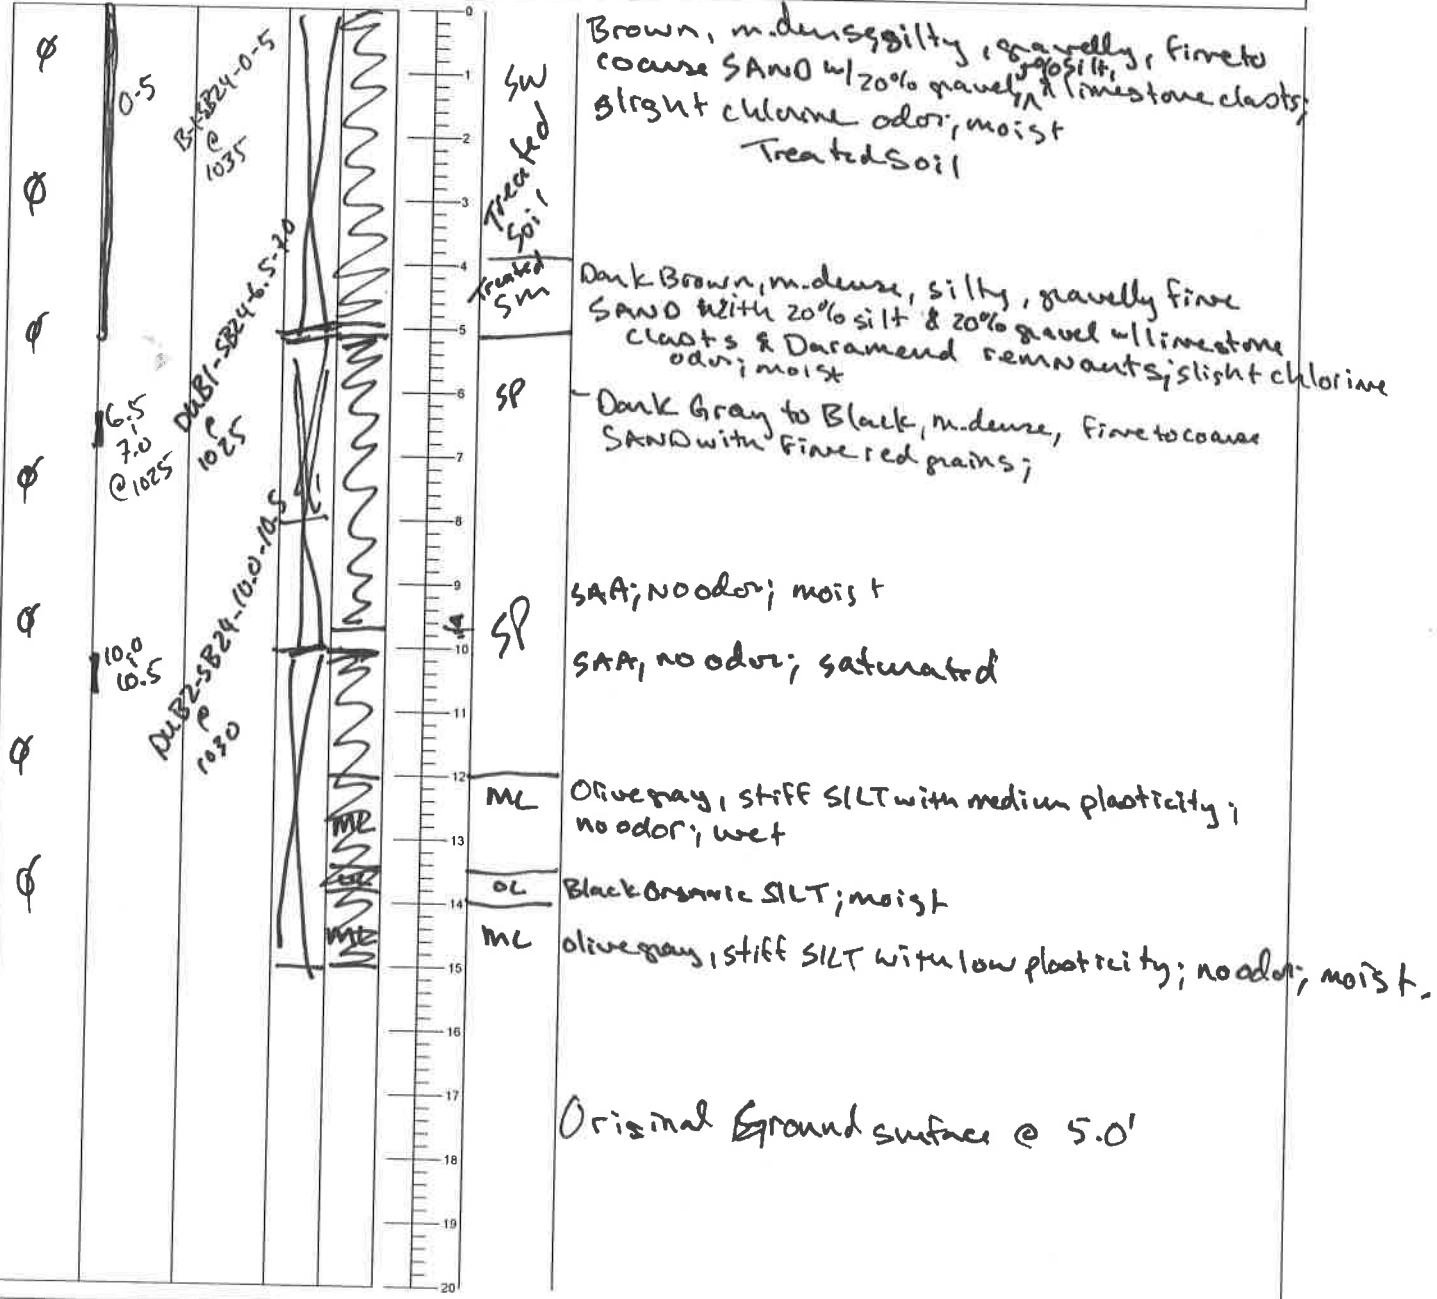 Ø
Ø
Ø
Ø
Ø
Ø
Ø
0-5
6.5
7.0
@1025
10.0
10.5
SB24-0-5
@
1035
DUB1-SB24-6.5-7.0
@
1025
DUB2-SB24-10.0-10.5
@
1030
ML
OL
ML
0
1
2
3
4
5
6
7
8
9
10
11
12
13
14
15
16
17
18
19
20
SW
Treated
Soil
Treated
SM
SP
SP
ML
OL
ML
Brown, m.dense silty, gravelly, fine to
coarse SAND w/20% gravel, 5% silt, & limestone clasts;
slight chlorine odor, moist
Treated Soil
Dark Brown, m.dense, silty, gravelly fine
SAND with 20% silt & 20% gravel w/ limestone
clasts & Daramend remnants; slight chlorine
odor; moist
- Dark Gray to Black, m.dense, fine to coarse
SAND with fine red grains;
SAA; NO odor; moist
SAA, no odor; saturated
Olive gray, stiff SILT with medium plasticity;
no odor; wet
Black Organic SILT; moist
olive gray, stiff SILT with low plasticity; no odor; moist.
Original Ground surface @ 5.0'